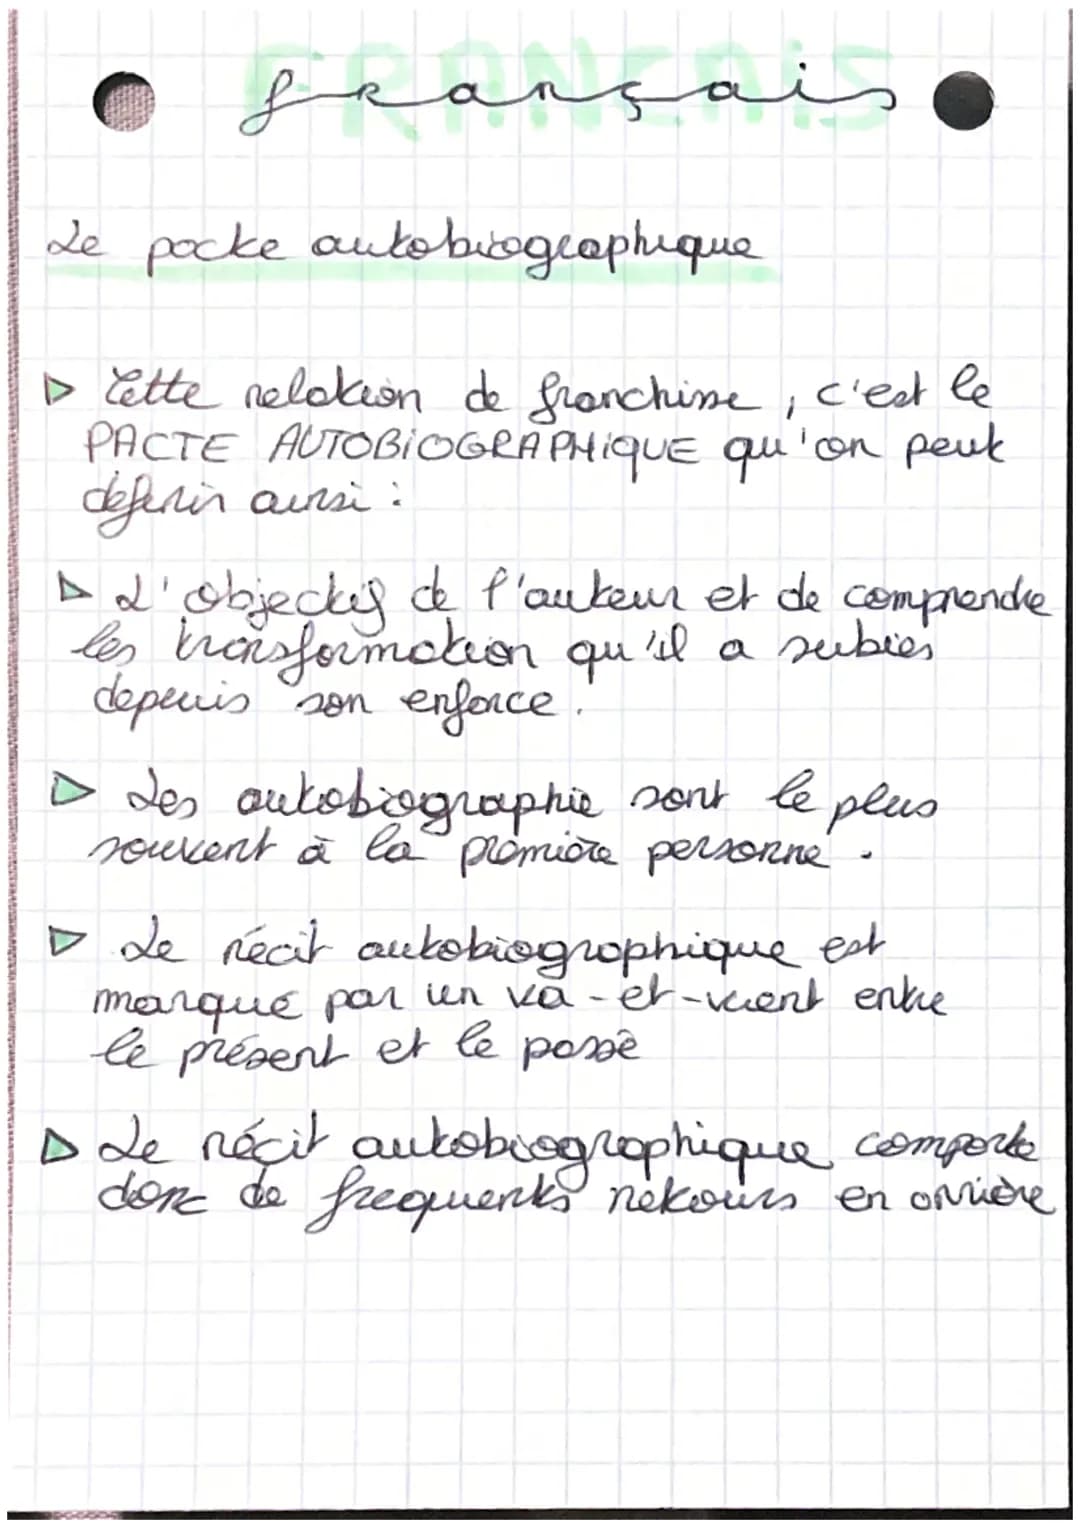 FRANÇAIS
français
Le pacte autobiographique
Cette relation de franchise, c'est le
PACTE AUTOBIOGRAPHIQUE qu'on peut
définir ainsi :
L'objectif de l'auteur et de comprendre
les transformation qu'il a subies
depuis son enfance.
Les autobiographie sont le plus
souvent à la première personne.
Le récit autobiographique est
marqué par un va-et-vient entre
le présent et le passé
Le récit autobiographique comporte
donc de frequents retours en arrière